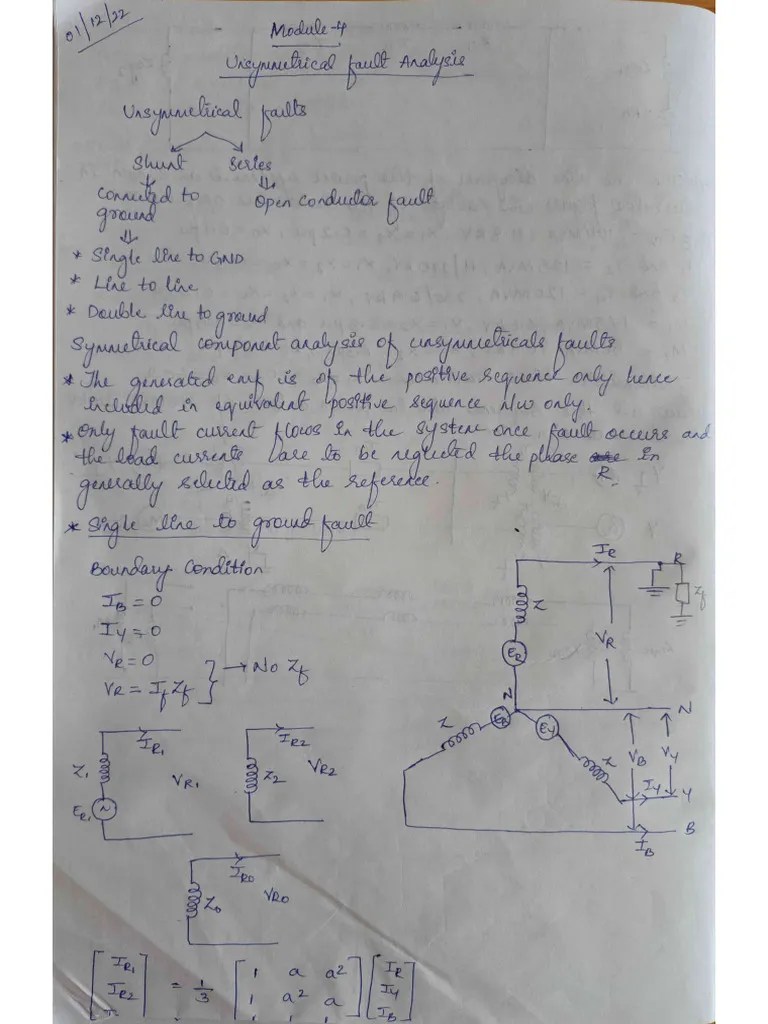 01/12/22
Module-4
Unsymmetrical fault Analysis
Unsymmetrical faults
Shunt Series
Connected to ground
Open Conductor fault
* Single line to GND
* Line to line
* Double line to ground
Symmetrical component analysis of unsymmetricals faults
* The generated emf is of the positive sequence only hence
included in equivalent positive sequence n/w only.
* Only fault current flows in the system once fault occurs and
the load currents are to be neglected the phase in
R,
generally selected as the reference.
* Single line to ground fault
Boundary Condition
I_B = 0
I_Y = 0
V_R = 0
V_R = I_f Z_f } → No Z_f
I_R R
Z Z_f
V_R
E_R
N N
Z E_B E_Y
Z V_B V_Y
I_Y Y
B
I_B
I_R1 I_R2
Z_1 V_R1 Z_2 V_R2
E_R1
I_R0
Z_0 V_R0
[I_R1] [1 a a²] [I_R]
[I_R2] = 1/3 [1 a² a] [I_Y]
[I_B]